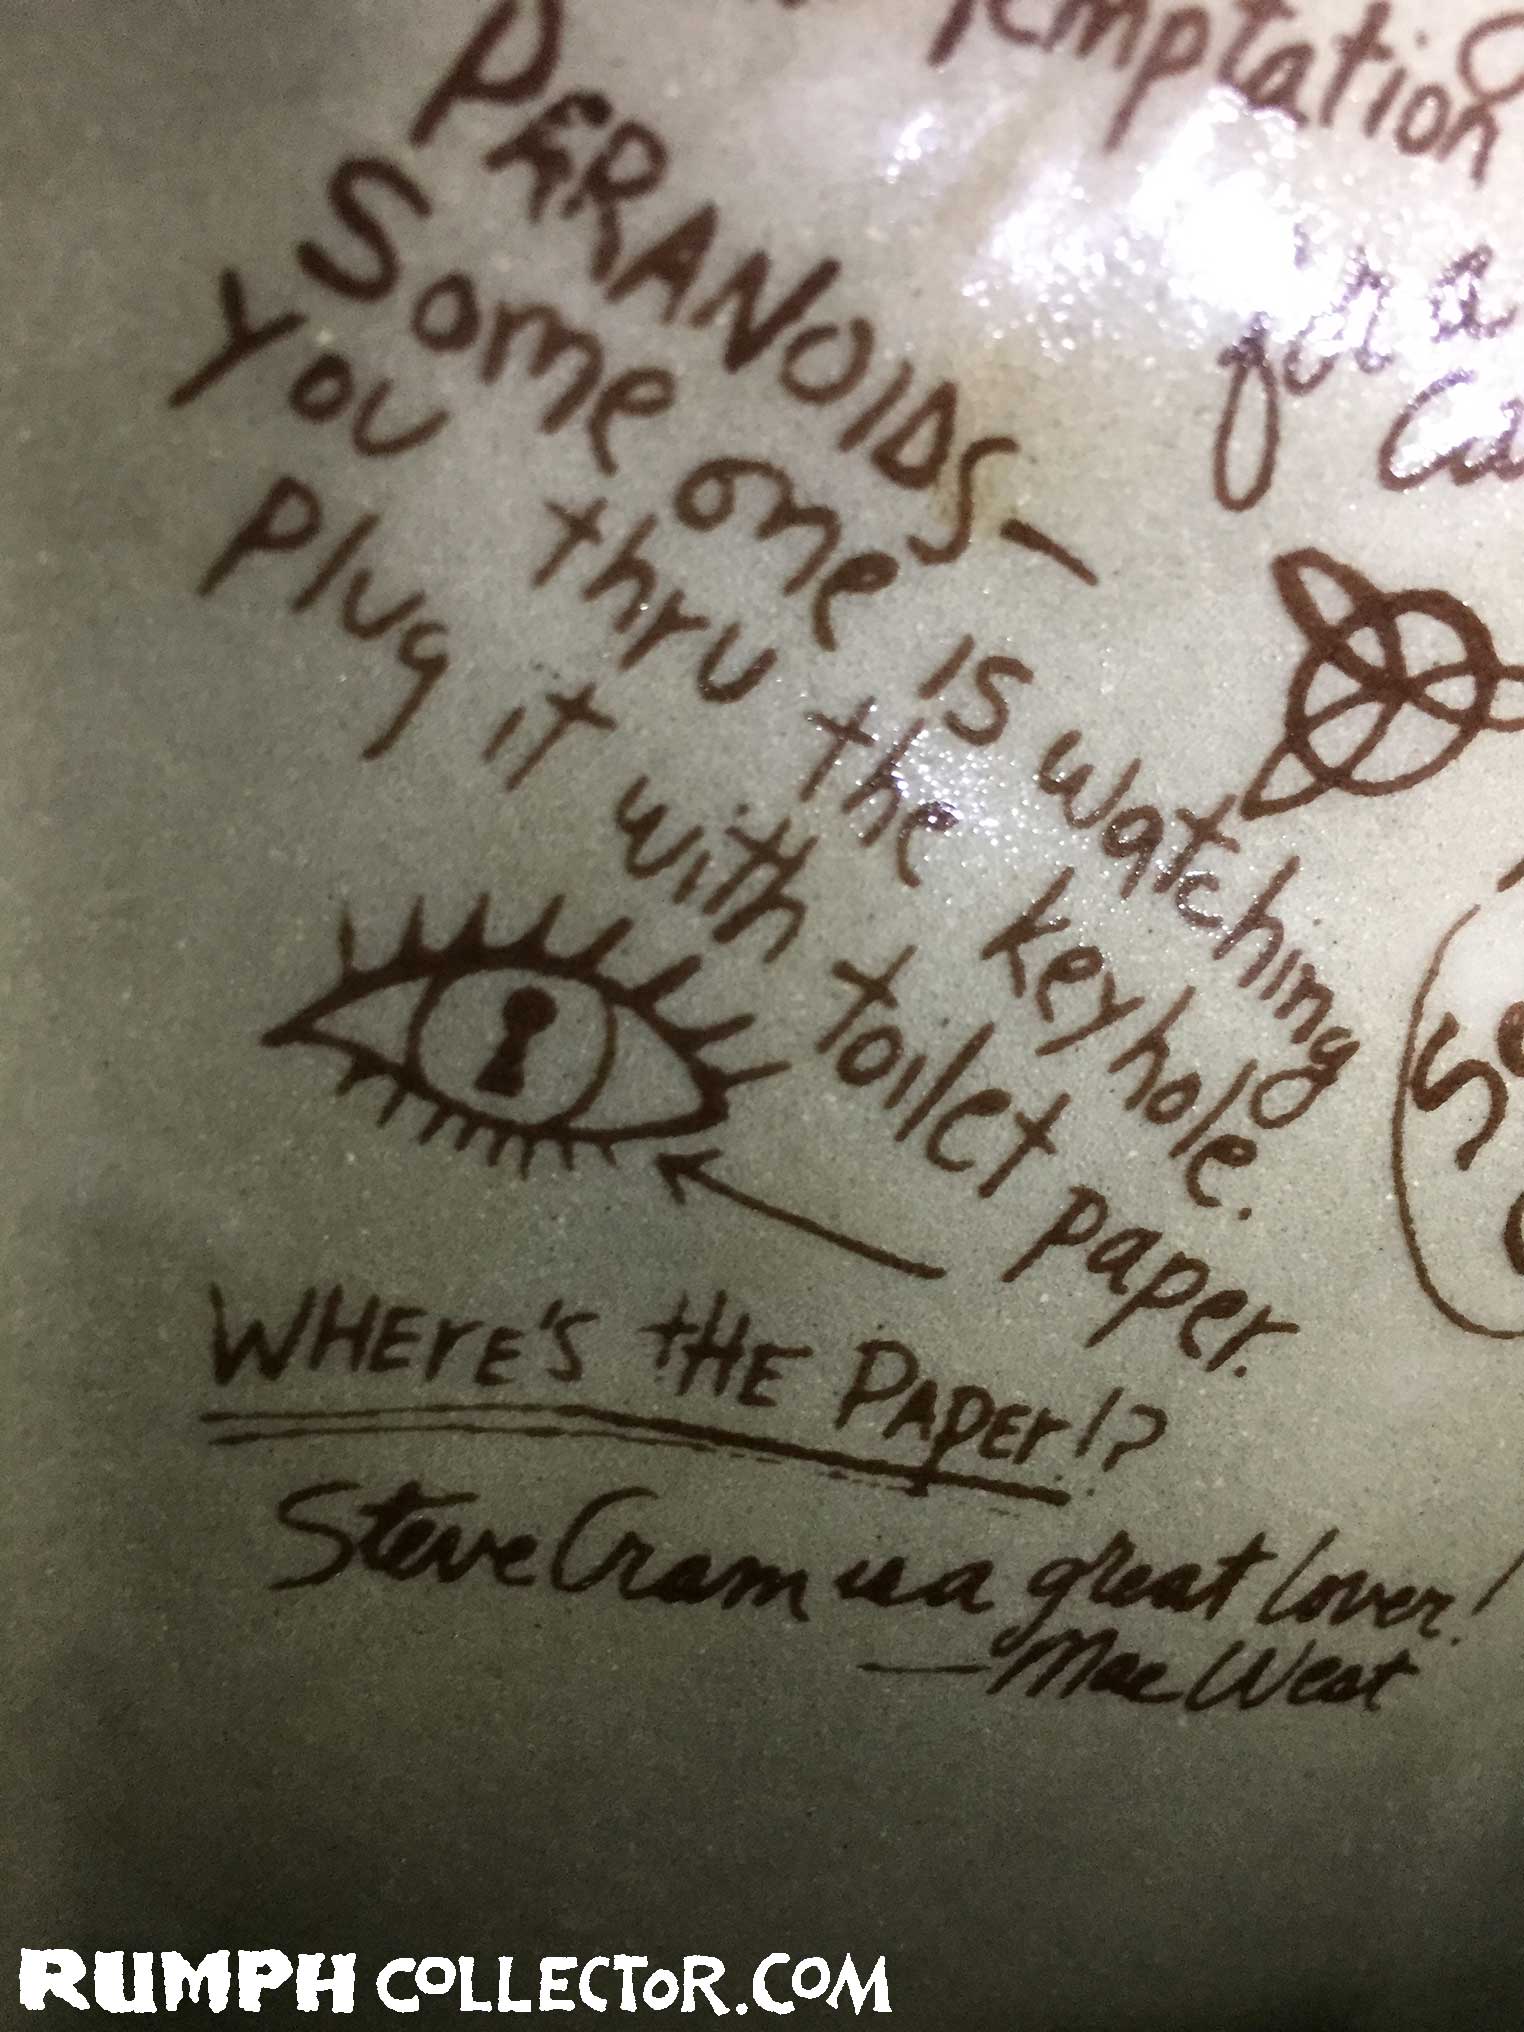 Temptation
PERANOIDS—
Some one is watching
you thru the keyhole.
Plug it with toilet paper.
for a
WHErE'S tHE PAPEr!?
Steve Cram is a great lover!
— Mae West
RUMPH COLLECTOR.COM